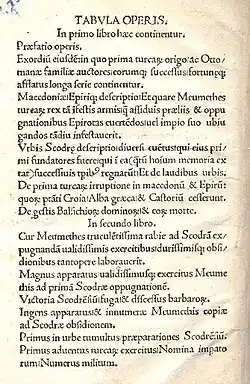 TABVLA OPERIS.
In primo libro hæc continentur.
Præfatio operis.
Exordiū eiusdē: in quo prima turcaȝ origo: ac Otto/
manæ familiæ auctores: eorumqȝ successus: fortunæqȝ
afflatus longa serie continetur.
Macedoniæ: Epiriqȝ descriptio: Et quare Meumethes
turcaȝ rex tā īfestis armis: & assiduis præliis & oppu
gnationibus Epirotas euertēdos: uel impio suo ubiu
gandos tādiu infestauerit.
Vrbis Scodrę descriptio: diuersi euētus: qui eius pri
mi fundatores fuere: qui ī ea (qntū hoium memoria ex
tat) successiuis tpibꝰ regnarūt: Et de laudibus urbis.
De prima turcaȝ irruptione in macedoniā & Epirū:
quoȝ ptāti Croia: Alba græca: & Castoriū cesserunt.
De gestis Balsichioȝ dominoȝ: & eoȝ morte.
In secundo libro.
Cur Meumethes truculētissima rabie ad Scodrā ex/
pugnandā ualidissimis exercitibus: durissimisqȝ obsi/
dionibus tantopere laborauerit.
Magnus apparatus: ualidissimusqȝ exercitus Meume
this ad primā Scodræ oppugnationē.
Victoria Scodrēsiū: fuga: & discessus barbaroȝ.
Ingens apparatus: & innumeræ Meumethis copiæ
ad Scodræ obsidionem.
Primus in urbe tumultus: præparationes Scodrēsiū:
Primus aduentus turcaȝ exercitus: Nomina impato
rum: Numerus militum.